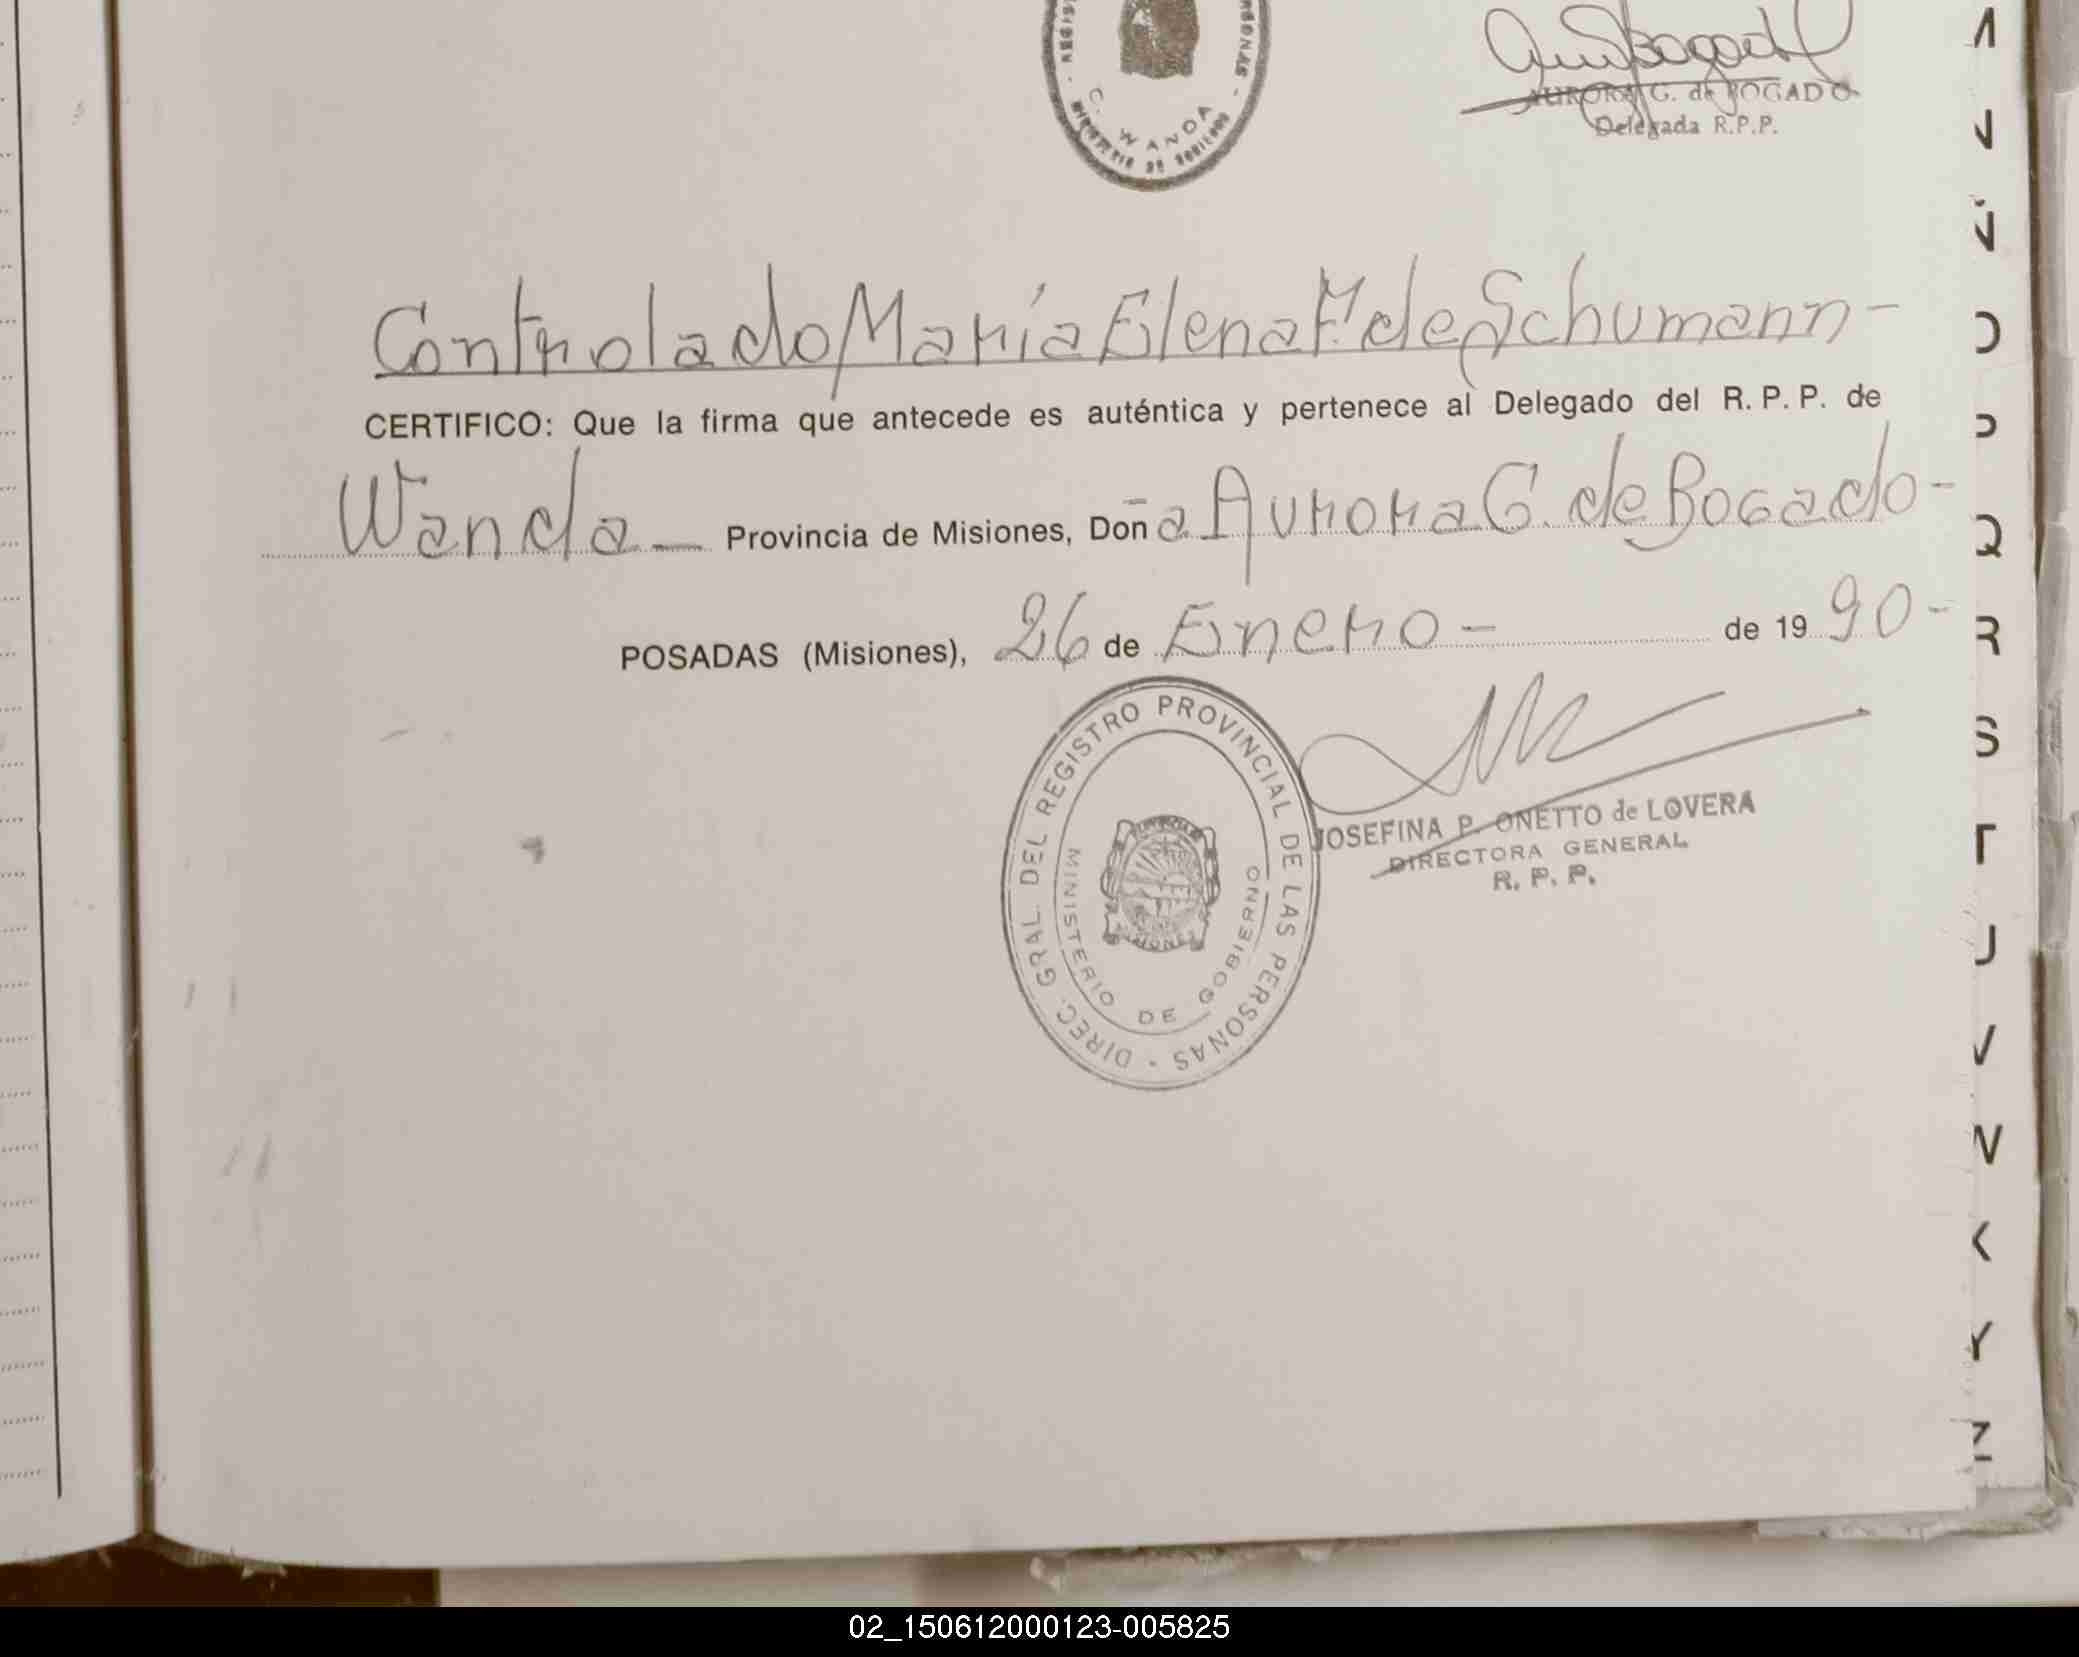 C. WANDA
MINISTERIO DE GOBIERNO
AURORA G. de BOGADO
Delegada R.P.P.
Controlado María Elena F. de Schumann-
CERTIFICO: Que la firma que antecede es auténtica y pertenece al Delegado del R. P. P. de
Wanda - Provincia de Misiones, Doña Aurora G. de Bogado-
POSADAS (Misiones), 26 de Enero - de 1990-
DIREC. GRAL. DEL REGISTRO PROVINCIAL DE LAS PERSONAS
MINISTERIO DE GOBIERNO
MISIONES
JOSEFINA P. ONETTO de LOVERA
DIRECTORA GENERAL
R. P. P.
N
Ñ
O
P
Q
R
S
T
U
V
W
X
Y
Z
02_150612000123-005825